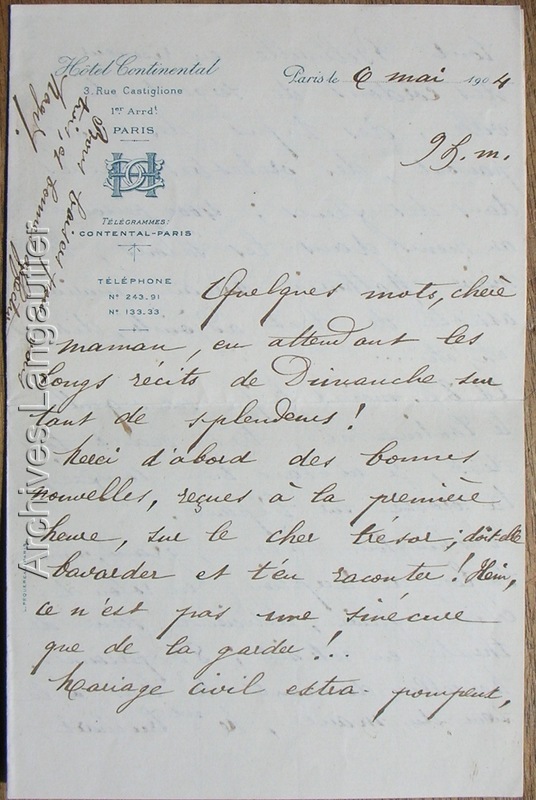 Hôtel Continental
3. Rue Castiglione
1er Arrdt
PARIS
TÉLÉGRAMMES:
CONTENTAL-PARIS
TÉLÉPHONE
Nº 243.91
Nº 133.33
Paris le 6 mai 1904
9 h. m.
Quelques mots, chère
maman, en attendant les
longs récits de Dimanche sur
tant de splendeurs!
Merci d'abord des bonnes
nouvelles, reçues à la première
heure, sur le cher trésor; doit-elle
bavarder et t'en raconter! Hein,
ce n'est pas une sinécure
que de la garder!..
Mariage civil extra-pompeux,
Archives Langautier